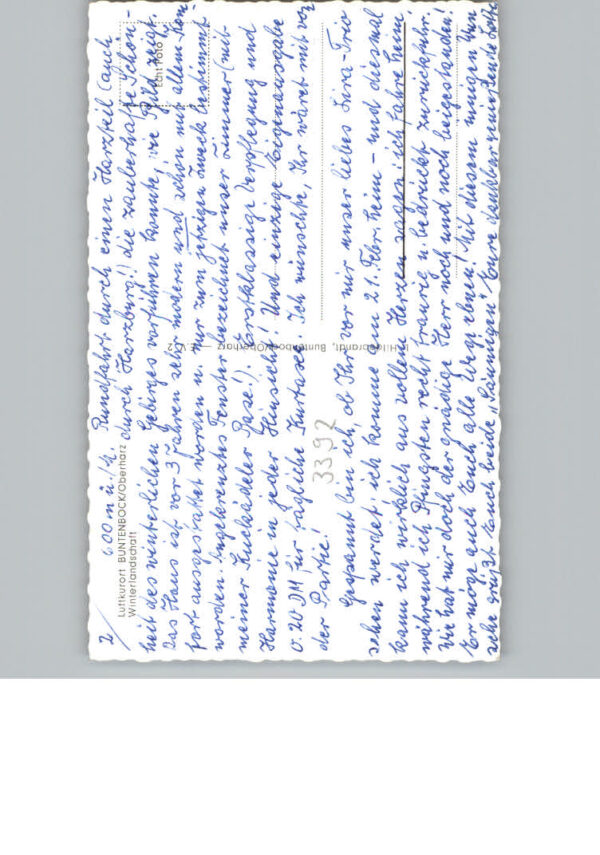 2/ 600 m ü./M. Rundfahrt durch einen Harzteil (auch
Luftkurort BUNTENBOCK/Oberharz
Winterlandschaft
Echt Foto
durch Harzburg!! die zauberhafte Schön-
heit des winterlichen Gebirges vorführen konnte, wie Bild zeigt.
Das Haus ist vor 3 Jahren sehr modern und schön mit allem Kom-
fort ausgestattet worden u. nur zum jetzigen Zweck bestimmt
worden. Angekreuztes Fenster bezeichnet unser Zimmer (mit
meiner Base!). Erstklassige Verpflegung und
Harmonie in jeder Hinsicht! Und einzige Eigenausgabe
0.20 DM für tägliche Kurtaxe. Ich wünschte, Ihr wäret mit von
der Partie!
3392
I. Hildebrandt, Buntenbock/Oberharz
Gespannt bin ich, ob Ihr vor mir unser liebes Trio
sehen werdet: ich komme am 21. Febr. heim – und diesmal
kann ich wirklich aus vollem Herzen sagen ich fahre heim,
während ich Pfingsten recht traurig u. bedrückt zurückfuhr.
Wie hat mir doch der gnädige Herr noch und noch beigestanden!
Er möge auch Euch alle Wege ebnen! Mit diesem innigen Wunsch
grüßt Euch beide, Eure dankbar